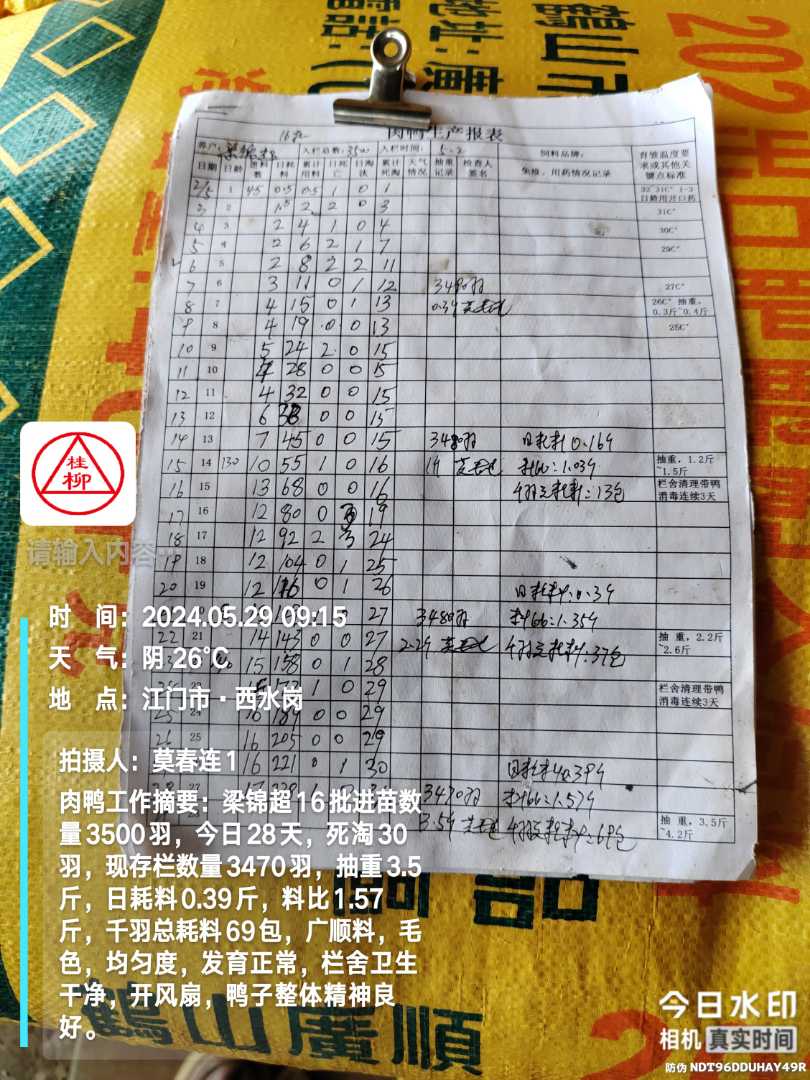 鹤山市
地址:廣
電話:(
16批
肉鸭生产报表
养户: 入栏总数: 3500 入栏时间: 5-2 饲料品牌:
日期 日龄 进料数 日耗料 累计用料 日死亡 日淘汰 累计死淘 天气情况 抽重记录 检查人签名 免疫、用药情况记录 育雏温度要求或其他关键点标准
2/5 1 45 0.5 0.5 1 0 1 32°31C° 1-3日龄用开口药
3 2 2 2 0 3 31C°
4 3 2 4 1 0 4 30C°
5 4 2 6 2 1 7 29C°
6 5 2 8 2 2 11
7 6 3 11 0 1 12 3480羽 27C°
8 7 4 15 0 1 13 26C° 抽重,0.3斤~0.4斤
9 8 4 19 0 0 13 25C°
10 9 5 24 2 0 15
11 10 4 28 0 0 15
12 11 4 32 0 0 15
13 12 6 38 0 0 15
14 13 7 45 0 0 15 3480羽 日耗料0.16斤
15 14 130 10 55 1 0 16 料比:1.03斤 抽重,1.2斤~1.5斤
16 15 13 68 0 0 16 千羽总耗料:13包 栏舍清理带鸭消毒连续3天
17 16 12 80 0 3 19
18 17 12 92 2 3 24
19 18 12 104 0 1 25
20 19 12 116 0 1 26 日耗料:0.3斤
27 3480羽 料比:1.35斤
22 21 14 143 0 0 27 2.2斤 千羽总耗料:37包 抽重,2.2斤~2.6斤
15 158 0 1 28
1 0 29 栏舍清理带鸭消毒连续3天
24 16 189 0 0 29
26 25 16 205 0 0 29
16 221 0 1 30 日耗料0.39斤
3470羽 料比:1.57斤
3.5斤 千羽总耗料:69包 抽重,3.5斤~4.2斤
桂柳
请输入内容
时 间:2024.05.29 09:15
天 气:阴 26℃
地 点:江门市·西水岗
拍摄人:莫春连1
肉鸭工作摘要:梁锦超16批进苗数
量3500羽,今日28天,死淘30
羽,现存栏数量3470羽,抽重3.5
斤,日耗料0.39斤,料比1.57
斤,千羽总耗料69包,广顺料,毛
色,均匀度,发育正常,栏舍卫生
干净,开风扇,鸭子整体精神良
好。
鶴山廣順
今日水印
相机 真实时间
防伪 NDT96DDUHAY49R